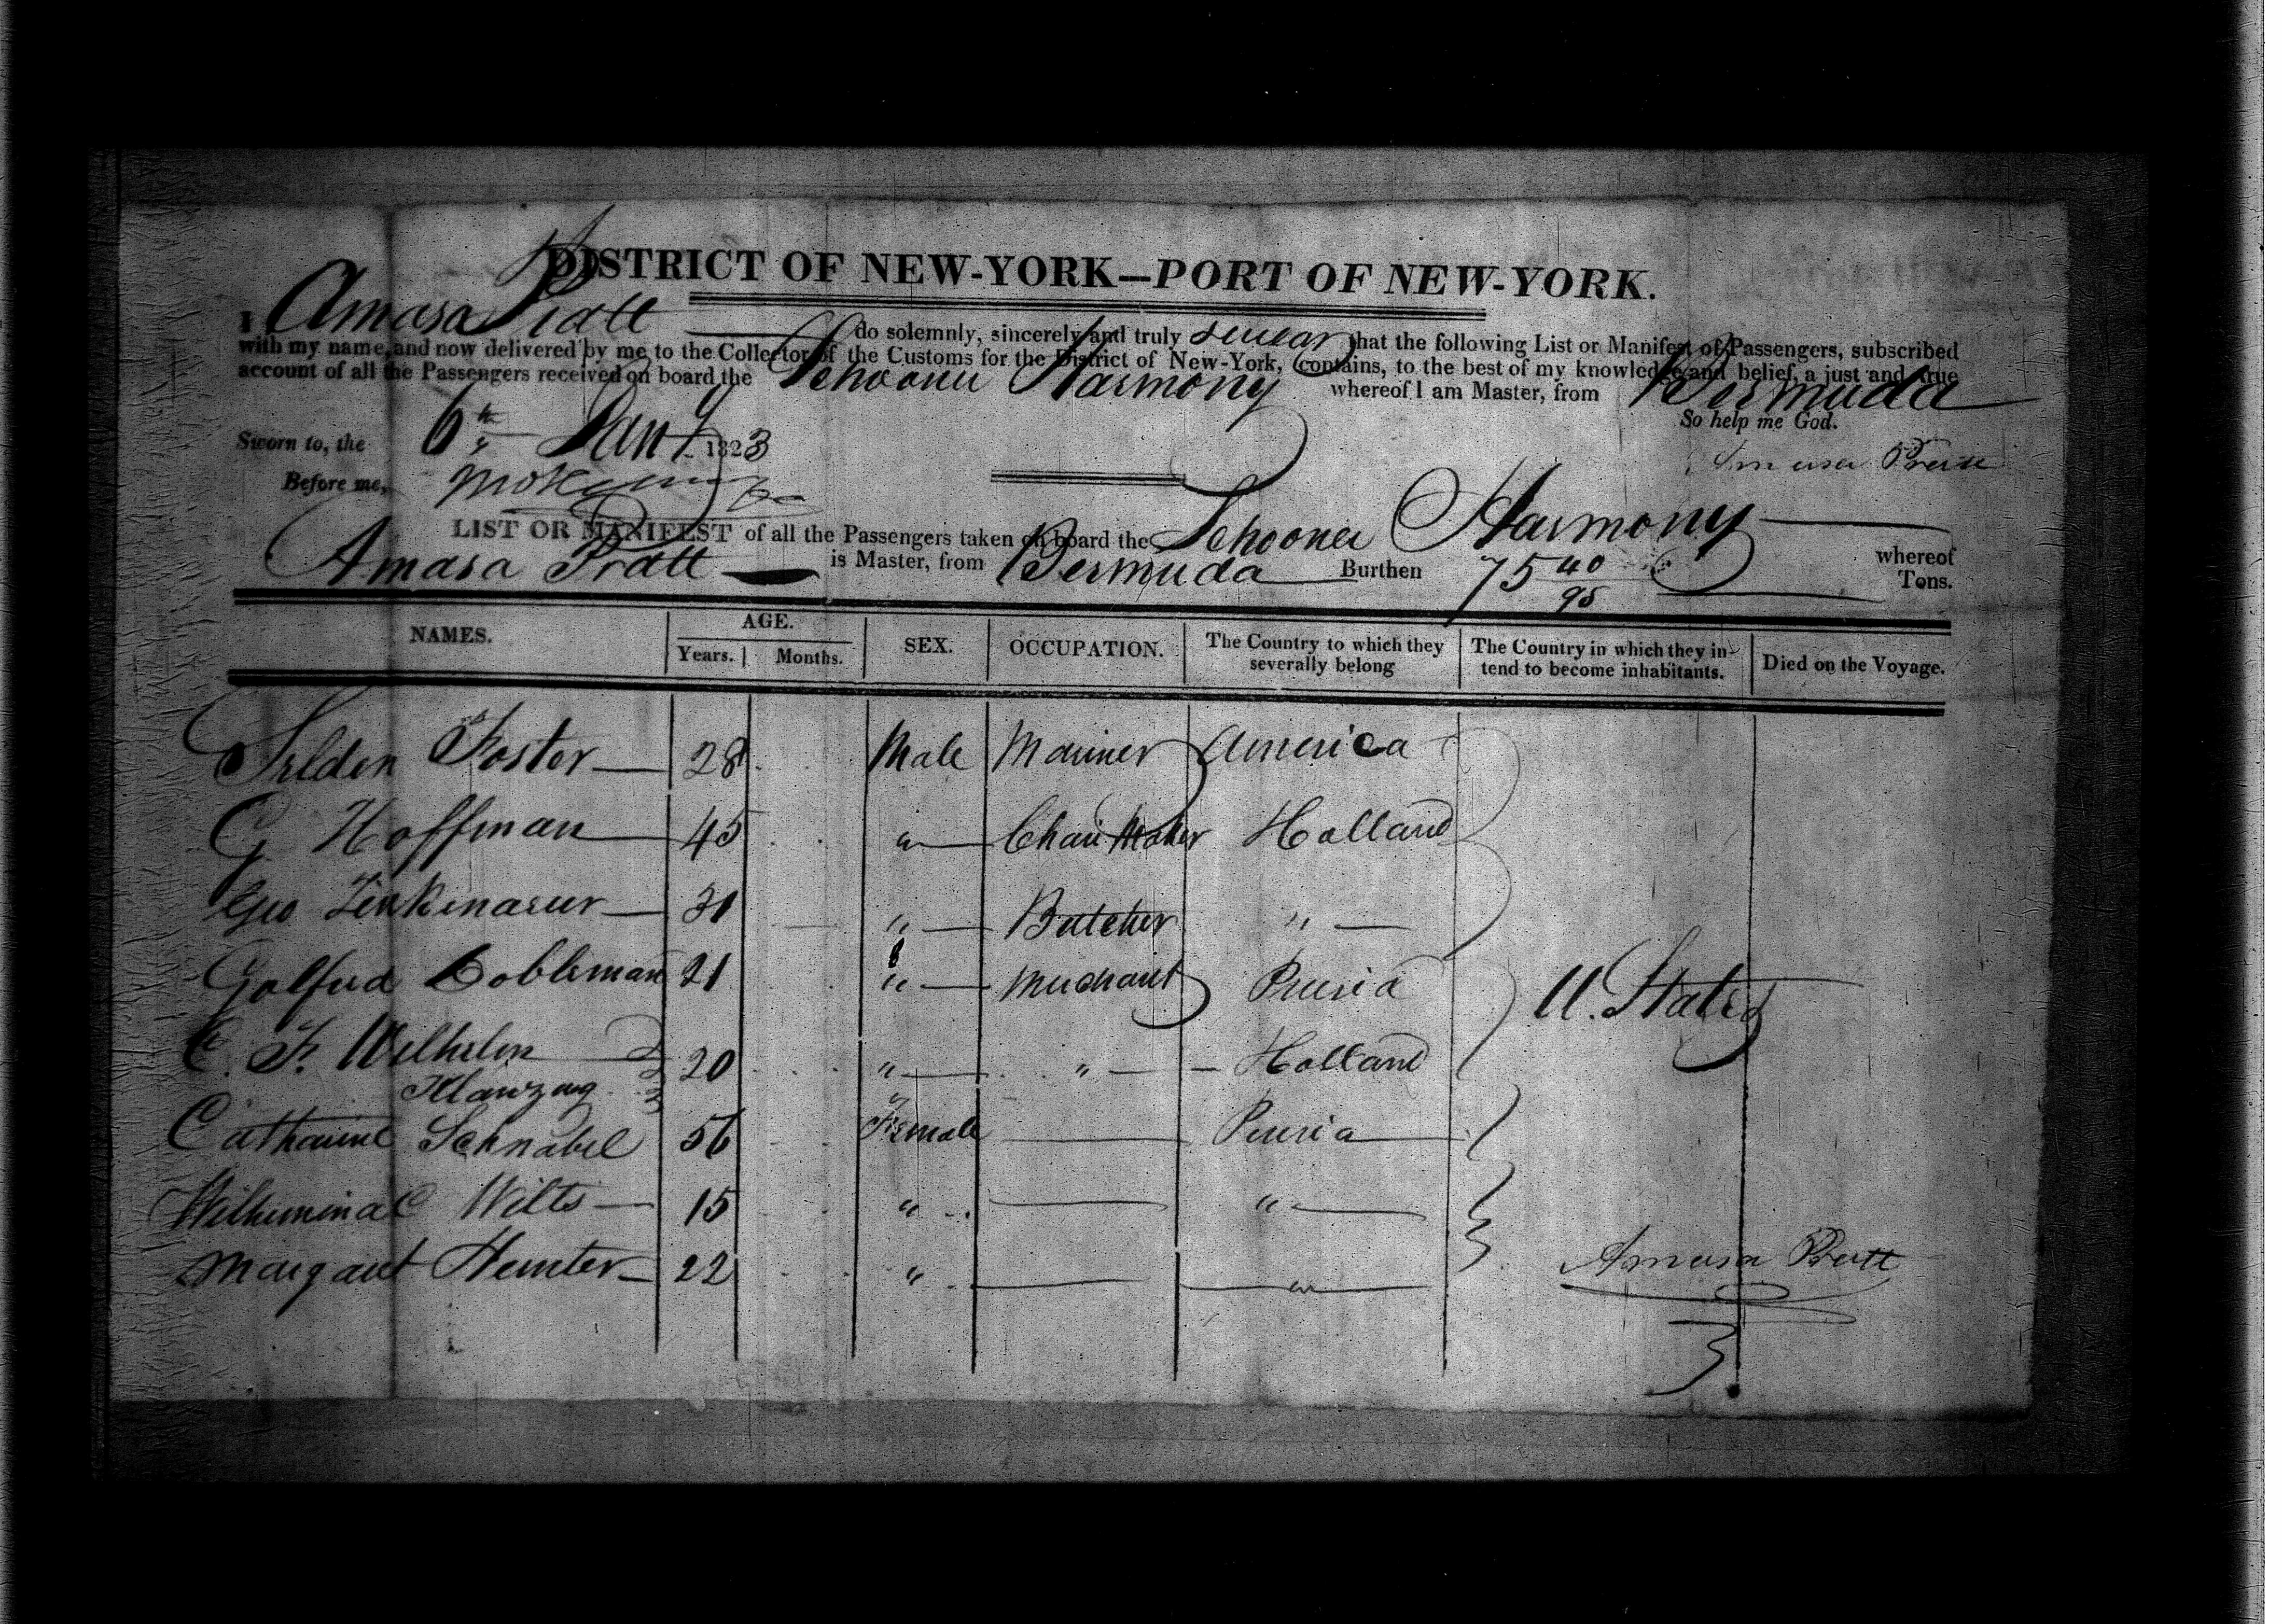 DISTRICT OF NEW-YORK—PORT OF NEW-YORK.
I Amasa Pratt do solemnly, sincerely and truly swear that the following List or Manifest of Passengers, subscribed
with my name, and now delivered by me to the Collector of the Customs for the District of New-York, contains, to the best of my knowledge and belief, a just and true
account of all the Passengers received on board the Schooner Harmony whereof I am Master, from Bermuda
So help me God.
Sworn to, the 6th Jany 1823
Amasa Pratt
Before me,
LIST OR MANIFEST of all the Passengers taken on board the Schooner Harmony whereof
Amasa Pratt is Master, from Bermuda Burthen 75 40/95 Tons.
NAMES. AGE. Years. Months. SEX. OCCUPATION. The Country to which they severally belong The Country in which they intend to become inhabitants. Died on the Voyage.
Selden Foster 28 Male Mariner America
G. Hoffman 45 " Chair Maker Holland
Geo 31 " Butcher "
Golfried Cobleman 21 " Merchant Prusia
U. States
C. F. Wilhelm 20 " " Holland
Klanzug
Catharine Schnabel 56 Female Prusia
Wilhemina C Wilts 15 " "
Margaret Hunter 22 " "
Amasa Pratt